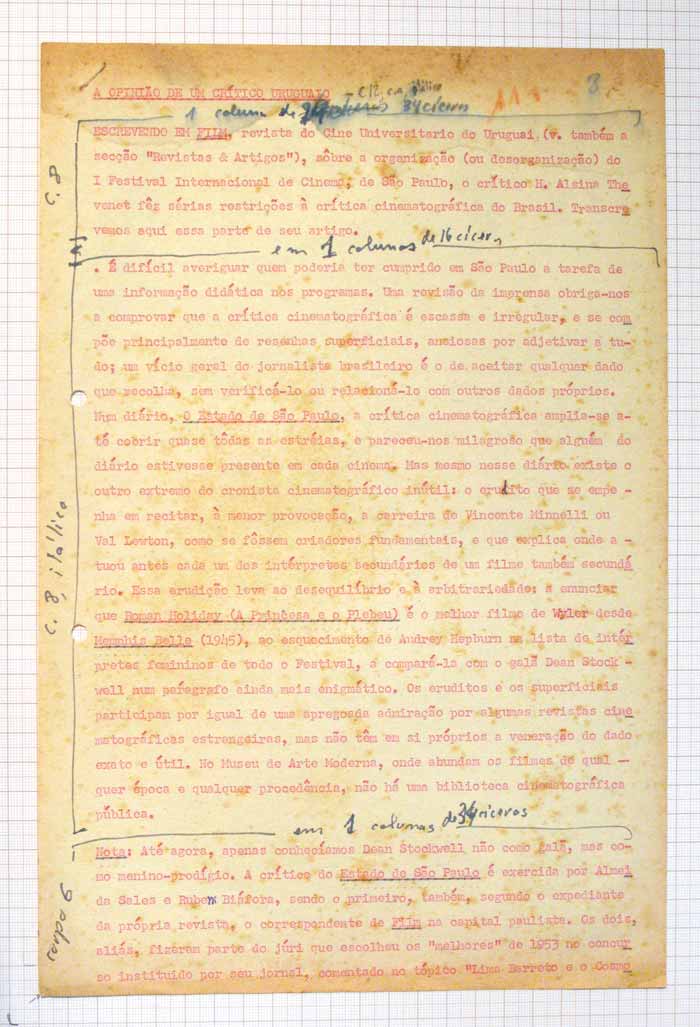 A OPINIÃO DE UM CRÍTICO URUGUAIO
3.
1 coluna de 34 cíceros
ESCREVENDO EM FILM, revista do Cine Universitario do Uruguai (v. também a
secção "Revistas & Artigos"), sôbre a organização (ou desorganização) do
I Festival Internacional de Cinema, de São Paulo, o crítico H. Alsina The
venet fêz sérias restrições à crítica cinematográfica do Brasil. Transcre
vemos aqui essa parte de seu artigo.
C. 8
em 1 colunas de 16 cíceros
. É difícil averiguar quem poderia ter cumprido em São Paulo a tarefa de
uma informação didática nos programas. Uma revisão da imprensa obriga-nos
a comprovar que a crítica cinematográfica é escassa e irregular, e se com
põe principalmente de resenhas superficiais, ansiosas por adjetivar a tu-
do; um vício geral do jornalista brasileiro é o de aceitar qualquer dado
que recolha, sem verificá-lo ou relacioná-lo com outros dados próprios.
Num diário, O Estado de São Paulo, a crítica cinematográfica amplia-se a-
té cobrir quase tôdas as estréias, e pareceu-nos milagroso que alguém do
diário estivesse presente em cada cinema. Mas mesmo nesse diário existe o
outro extremo do cronista cinematográfico inútil: o erudito que se empe -
nha em recitar, à menor provocação, a carreira de Vincente Minnelli ou
Val Lewton, como se fôssem criadores fundamentais, e que explica onde a -
tuou antes cada um dos intérpretes secundários de um filme também secundá
rio. Essa erudição leva ao desequilíbrio e à arbitrariedade: a enunciar
que Roman Holiday (A Princesa e o Plebeu) é o melhor filme de Wyler desde
Memphis Belle (1945), ao esquecimento de Audrey Hepburn na lista de intér
pretes femininos de todo o Festival, a compará-la com o galã Dean Stock -
well num parágrafo ainda mais enigmático. Os eruditos e os superficiais
participam por igual de uma apregoada admiração por algumas revistas cine
matográficas estrangeiras, mas não têm em si próprios a veneração do dado
exato e útil. No Museu de Arte Moderna, onde abundam os filmes de qual -
quer época e qualquer procedência, não há uma biblioteca cinematográfica
pública.
C. 8, itálico
em 1 colunas de 34 cíceros
Nota: Até agora, apenas conhecíamos Dean Stockwell não como galã, mas co-
mo menino-prodígio. A crítica do Estado de São Paulo é exercida por Almei
da Sales e Ruben Biáfora, sendo o primeiro, também, segundo o expediente
da própria revista, o correspondente de Film na capital paulista. Os dois,
aliás, fizeram parte do júri que escolheu os "melhores" de 1953 no concur
so instituído por seu jornal, comentado no tópico "Lima Barreto e o Cosmo